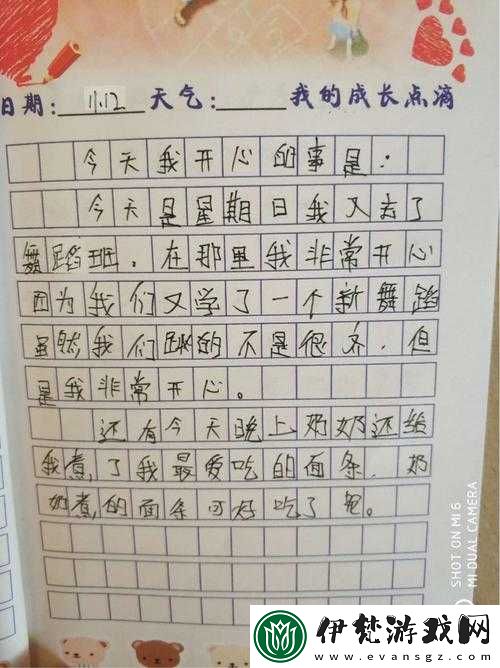 日期：11.12 天气：____ 我的成长点滴
今天我开心的事是：
今天是星期日我又去了
舞蹈班，在那里我非常开心
因为我们又学了一个新舞蹈
虽然我们跳的不是很齐，但
是我非常开心。
还有今天晚上奶奶还给
我煮了我最爱吃的面条，奶
奶煮的面条可好吃了
SHOT ON MI 6
MI DUAL CAMERA
伊梵游戏网
www.evansgz.com